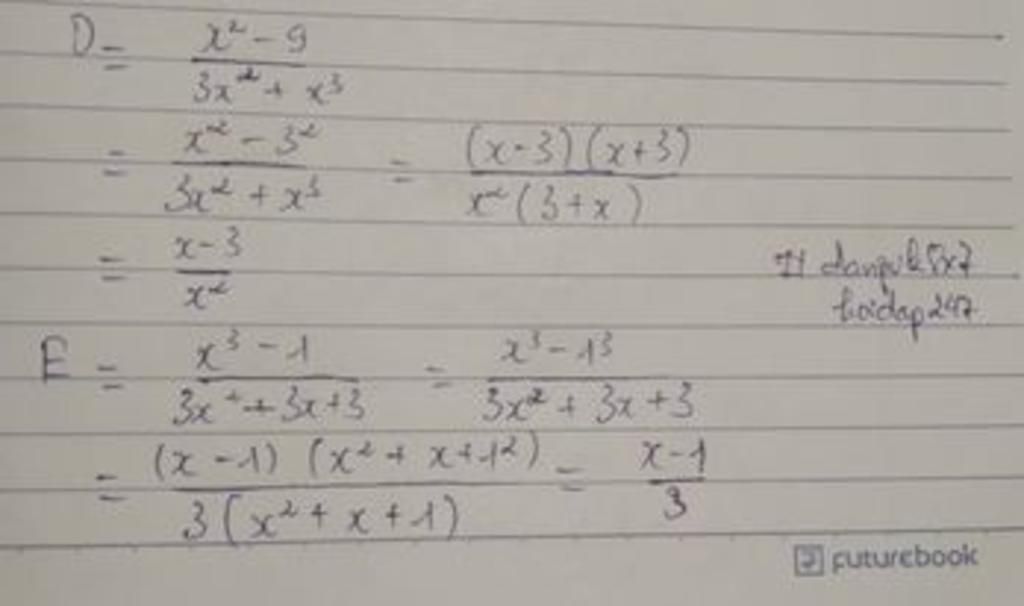 D = \frac{x² - 9}{3x² + x³}
= \frac{x² - 3²}{3x² + x³} = \frac{(x-3)(x+3)}{x²(3+x)}
= \frac{x-3}{x²}
hoidap247
E = \frac{x³ - 1}{3x² + 3x + 3} = \frac{x³ - 1³}{3x² + 3x + 3}
= \frac{(x - 1)(x² + x + 1²)}{3(x² + x + 1)} = \frac{x-1}{3}
futurebook